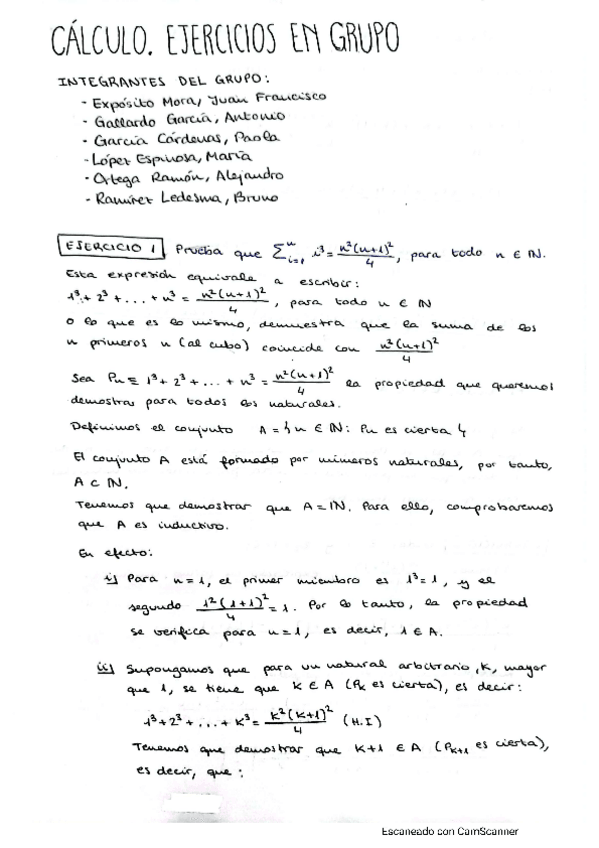 CÁLCULO. EJERCICIOS EN GRUPO
INTEGRANTES DEL GRUPO:
- Expósito Mora, Juan Francisco
- Gallardo García, Antonio
- García Cárdenas, Paola
- López Espinosa, María
- Ortega Ramón, Alejandro
- Ramírez Ledesma, Bruno
EJERCICIO 1 Prueba que ∑_{i=1}^{n} i³ = n²(n+1)²/4, para todo n ∈ ℕ.
Esta expresión equivale a escribir:
1³ + 2³ + ... + n³ = n²(n+1)²/4, para todo n ∈ ℕ
o lo que es lo mismo, demuestra que la suma de los
n primeros n (al cubo) coincide con n²(n+1)²/4
Sea Pn ≡ 1³ + 2³ + ... + n³ = n²(n+1)²/4 la propiedad que queremos
demostrar para todos los naturales.
Definimos el conjunto A = { n ∈ ℕ: Pn es cierta }
El conjunto A está formado por números naturales, por tanto,
A ⊂ ℕ.
Tenemos que demostrar que A = ℕ. Para ello, comprobaremos
que A es inductivo.
En efecto:
i) Para n = 1, el primer miembro es 1³ = 1, y el
segundo 1²(1+1)²/4 = 1. Por lo tanto, la propiedad
se verifica para n = 1, es decir, 1 ∈ A.
ii) Supongamos que para un natural arbitrario, k, mayor
que 1, se tiene que k ∈ A (Pk es cierta), es decir:
1³ + 2³ + ... + k³ = k²(k+1)²/4 (H.I)
Tenemos que demostrar que k+1 ∈ A (Pk+1 es cierta),
es decir, que:
Escaneado con CamScanner